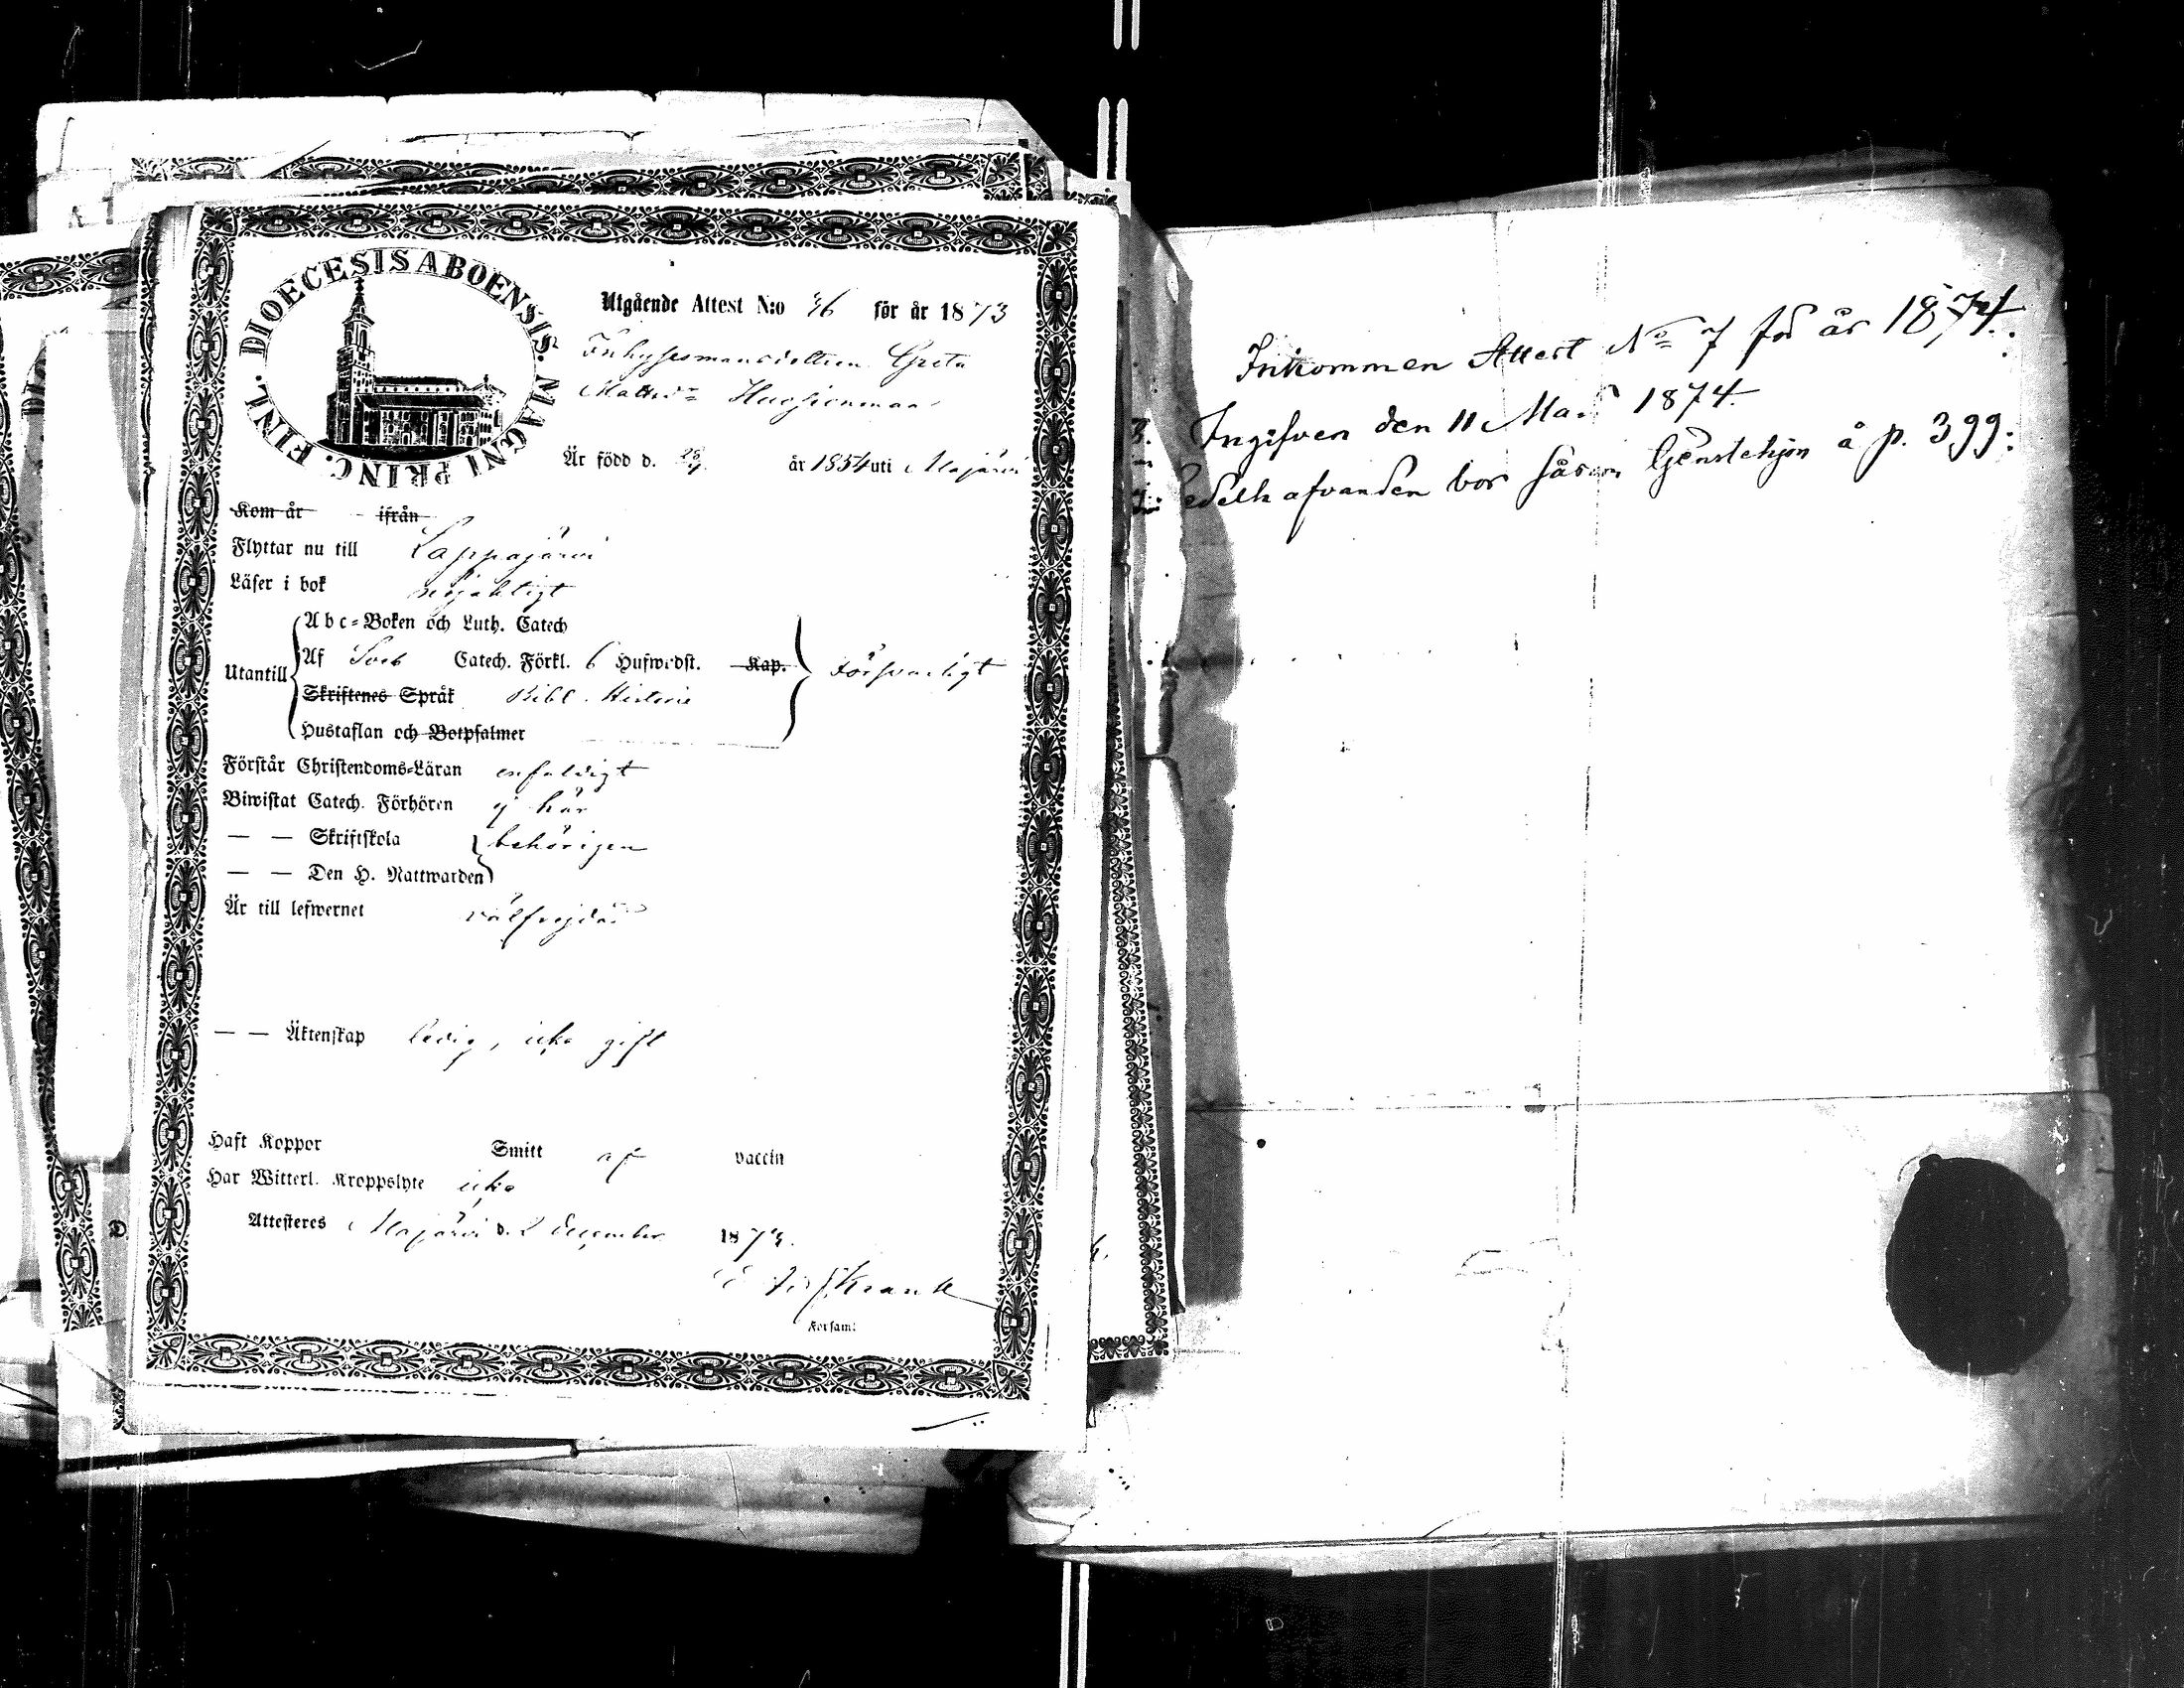 DIOECESIS ABOENSIS. MAGNI PRINC. FINL.
Utgående Attest N:o 36 för år 1873
Inhysesmansdottren Greta
Mattsdr Huopionmaa
Är född d. år 1854 uti Alajärvi
Kom år ifrån
Flyttar nu till Lappajärvi
Läser i bok nöjaktigt
Utantill
Abc-Boken och Luth. Catech
Af Sveb Catech. Förkl. 6 Hufwudst. Kap.
Försvarligt
Skriftenes Språk Bibl. Historie
Hustaflan och Botpsalmer
Förstår Christendoms-Läran enfaldigt
Biwistat Catech. Förhören ej här
— — Skriftskola behörigen
— — Den H. Nattwarden
Är till lefwernet välfrejdad
— — Äktenskap ledig, icke gift
Haft Koppor Smitt af vaccin
Har Witterl. Kroppslyte icke
Attesteres Alajärvi d. 2 December 1873.
Församl
Inkommen Attest No 7 för år 1874.
Ingifven den 11 Mars 1874.
afvanden bor såsom å p. 399: